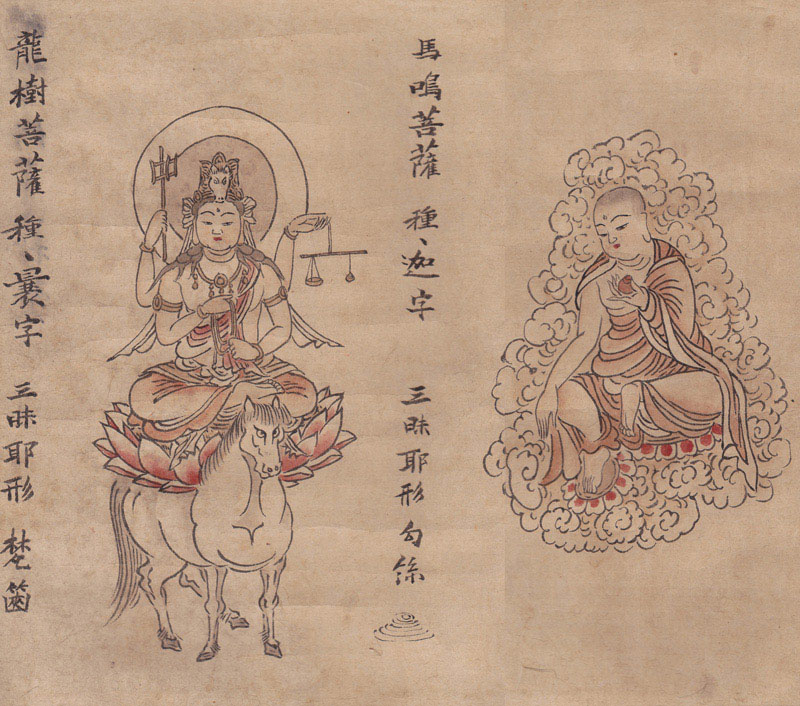 馬鳴菩薩 種ヽ迦字 三昧耶形 勾絲
龍樹菩薩 種ヽ曩字 三昧耶形 梵篋